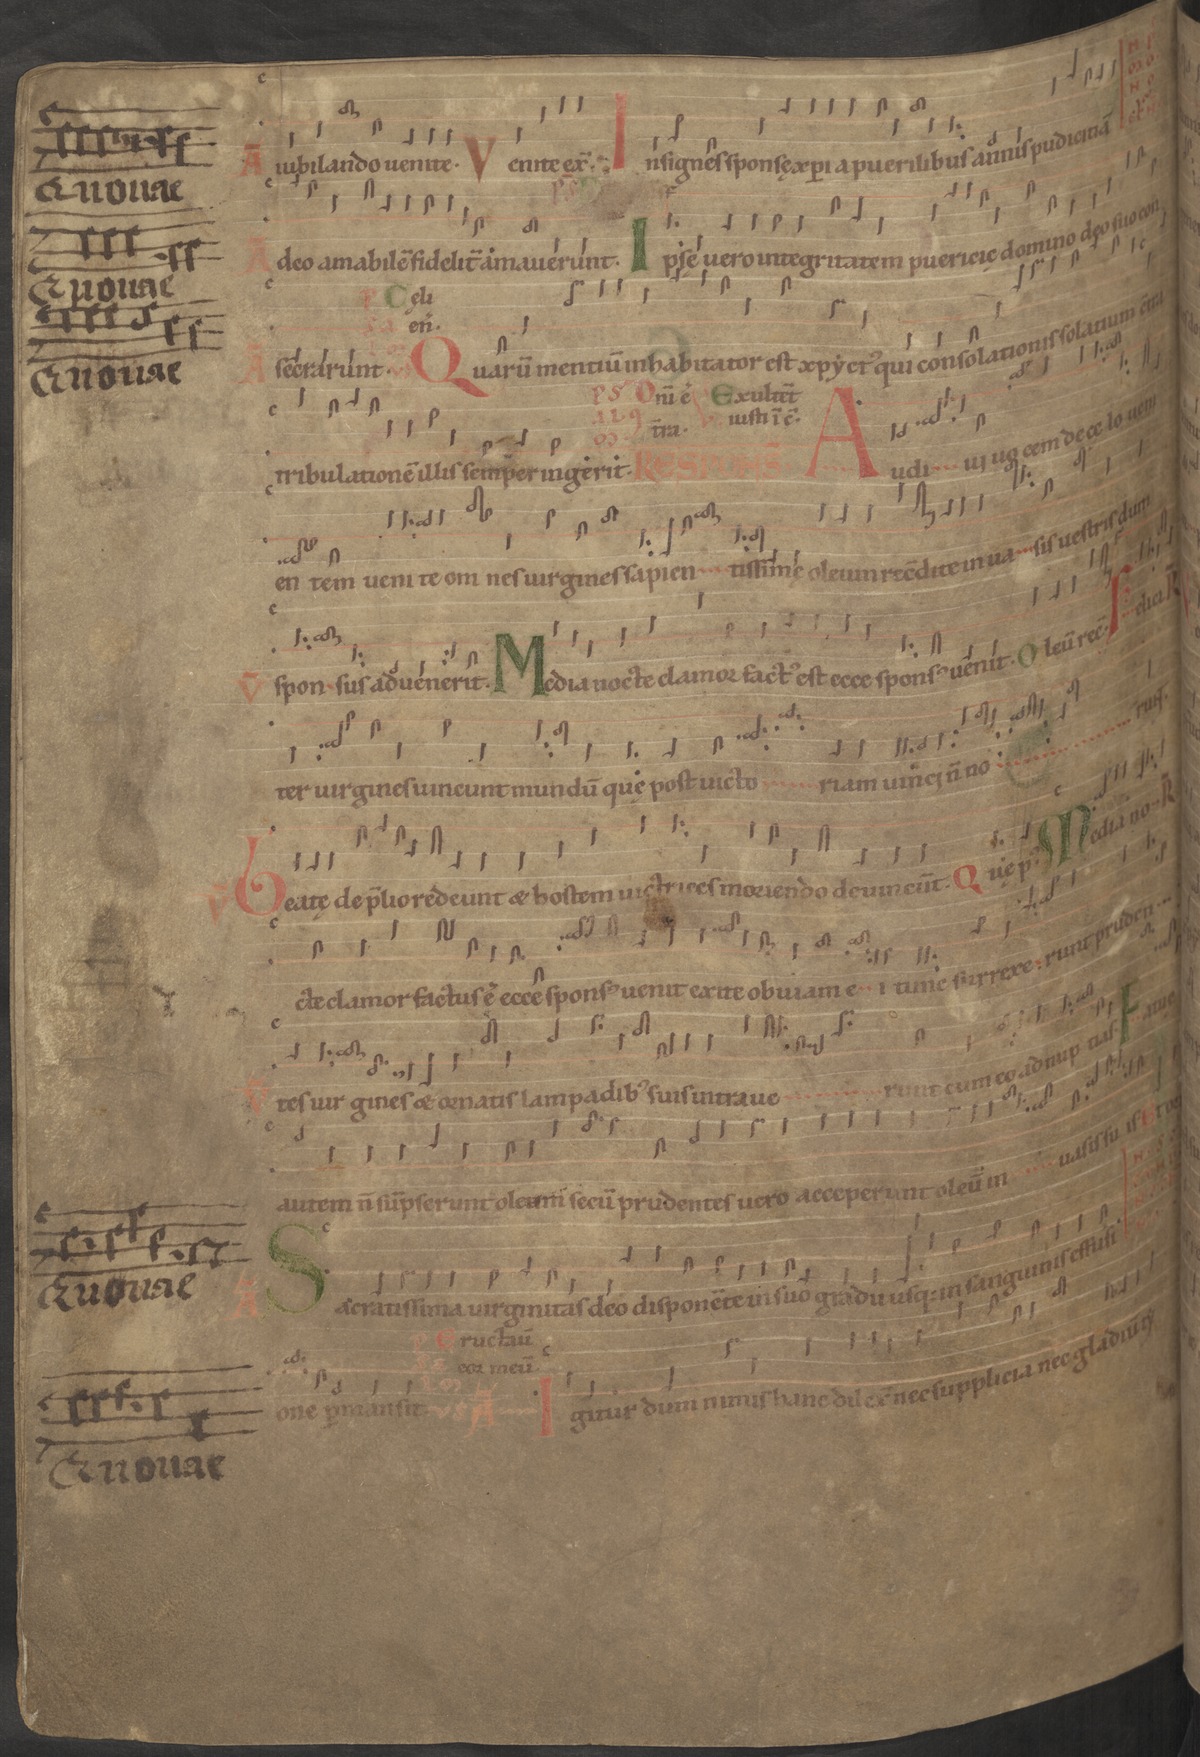 A iubilando uenite. V enite ex̄. I nsignes sponsę xp̄i a puerilibus annis pudicitiā
Euouae
A deo amabilē fidelit̄ amauerunt. I psę uero integritatem puericię domino deo suo con
Euouae
Cęli
en̄.
Euouae
A secrarunt. Q uarū mentiū inhabitator est xp̄ꝰ et qui consolationis solatium
Omī ē Exultēt
t̄ra. iusti ī
tribulationē illis semper ingerit. RESPONS A udi ui uocem de cę lo ueni
en tem uenite om nes uirgines sapien tissimę oleum recōdite in ua sis uestris dum
V spon sus aduenerit. M edia nocte clamor factꝰ est ecce sponsꝰ uenit. O leū rec̄.
ter uirgines uincunt mundū quę post uicto riam uinci n̄ no
B eatę de p̄lio redeunt & hostem uictrices moriendo deuincūt. Q uę p̄ Media no R
cte clamor factus ē ecce sponsꝰ uenit exite obuiam e i tunc surrexe runt pruden
V tes uir gines & ornatis lampadibꝰ suis intraue runt cum eo ad nup tias. F atue
autem n̄ sūpserunt oleum secū prudentes uero acceperunt oleū in uasis su is
Euouae
A S acratissima uirginitas deo disponēte in suo gradu usq; in sanguinis effusi
Eructauī
cor meū
one p̄mansit. A I gitur dum nimis hanc dilex̄ nec supplicia nec gladiū
Euouae